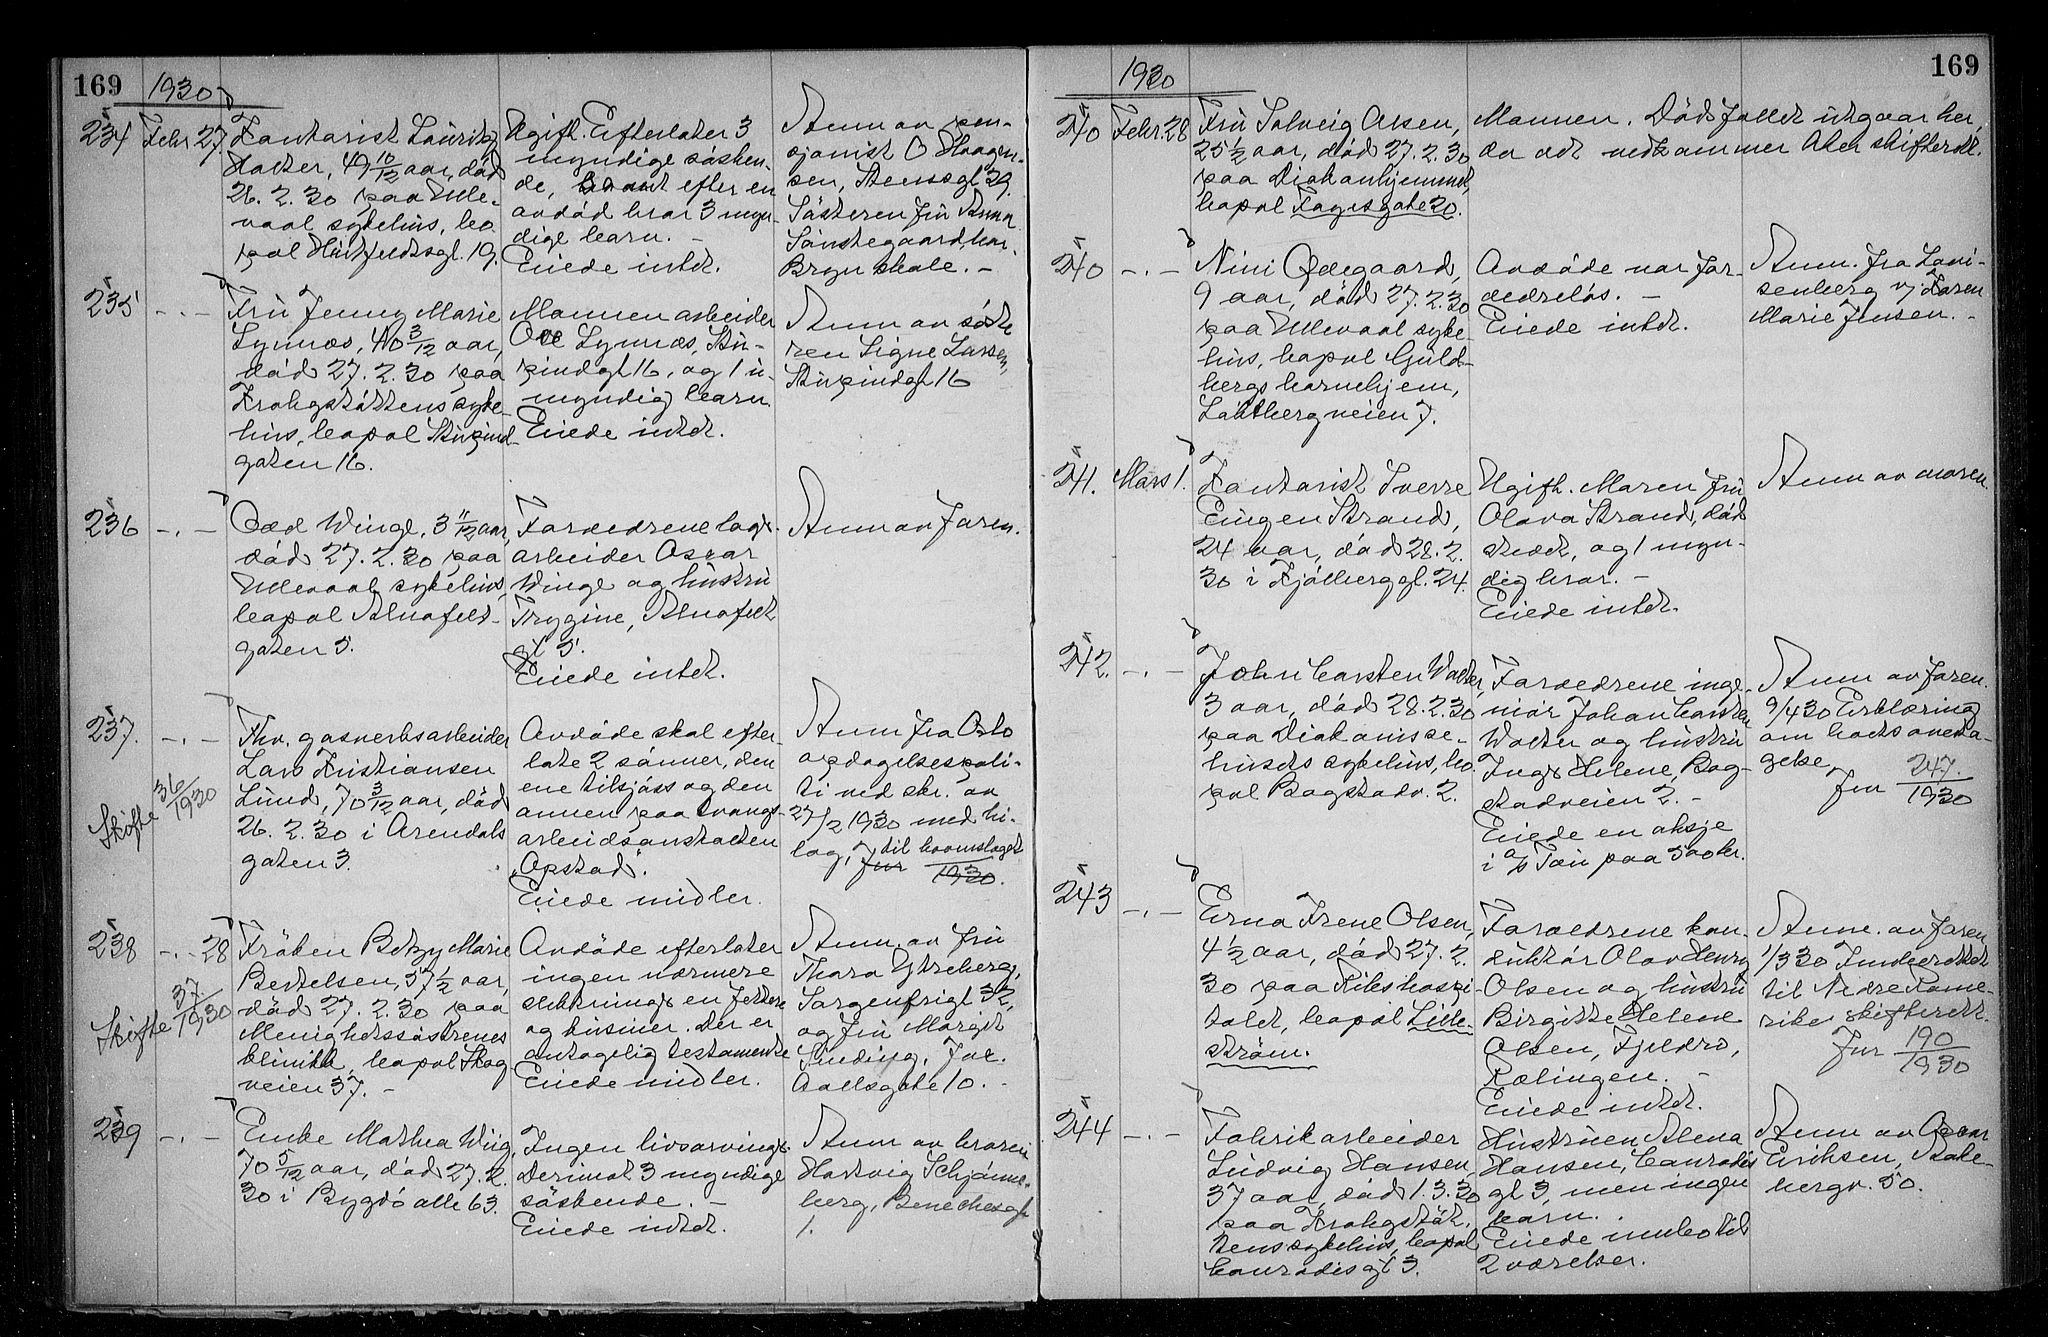 169
1930
234 Febr. 27.
Kontorist Lauritz
Holter, 49 10/12 aar, död
26. 2. 30 paa Ulle-
vaal sykehus, bo-
pæl Huitfeldtsgt. 19.
Ugift. Efterlater 3
myndige sösken-
de, samt efter en
avdöd bror 3 myn-
dige barn. -
Eiede intet.
Anm av pen-
sjonist O Haagen-
sen, Stensgt 39.
Sösteren fru Anna
Sönstegaard, har.
Bryn skole. -
235 -.-
Fru Jenny Marie
Lynnæs, 40 3/12 aar,
död 27. 2. 30 paa
Krohgstöttens syke-
hus, bopæl Stupind-
gaten 16.
Mannen arbeider
Ole Lynnæs, Stu-
pindgt 16, og 1 u-
myndig barn.
Eiede intet.
Anm av söste-
ren Signe Larsen,
Stupindgt 16
236 -.-
Odd Winge, 3 11/12 aar,
död 27. 2. 30 paa
Ullevaal sykehus,
bopæl Alnafelt-
gaten 5.
Forældrene lag.
arbeider Oscar
Winge og hustru
Trygine, Alnafelt
gt 5.
Eiede intet.
Anm av faren.
237. -.-
Skifte 36/1930
Fhv. gasverksarbeider
Lars Kristiansen
Lund, 70 3/12 aar, död
26. 2. 30 i Arendals
gaten 3.
Avdöde skal efter-
late 2 sönner, den
ene tilsjöss og den
annen paa tvangs-
arbeidsanstalten
"Opstad".
Eiede midler.
Anm fra Oslo
opdagelsespoli-
ti ved skr. av
27/2 1930 med bi-
lag, til boomslaget
Jnr 1930.
238 -.- 28
Skifte 37/1930
Fröken Betzy Marie
Bertelsen, 57 1/2 aar,
död 27. 2. 30 paa
Menighetssöstrenes
klinikk, bopæl Skog
veien 37. -
Avdöde efterlater
ingen nærmere
slektninger en fettere
og kusiner. Der er
antagelig testamente
Eiede midler.
Anm. av fru
Thora Ytreberg,
Sorgenfrigt 32,
og fru Margit
Sinding, Jac.
Aallsgate 10. -
239 -.-
Enke Mathea Wiig,
70 5/12 aar, död 27. 2.
30 i Bygdö alle 63.
Ingen livsarvinger
derimot 3 myndige
söskende. -
Eiede intet.
Anm av broren
Hartvig Schjönne-
berg, Benechesgt
1.
169
1930
240 Febr. 28
Fru Solveig Olsen,
25 1/2 aar, död 27. 2. 30
paa Diakonhjemmet,
bopæl Fagesgate 20.
Mannen. Dödsfallet utgaar her,
da det vedkommer Aker skifterett.
240 -.-
Nini Ödegaard,
9 aar, död 27. 2. 30
paa Ullevaal syke-
hus, bopæl Guld-
bergs barnehjem,
Avdöde var for-
eldrelös. -
Eiede intet.
Anm. fra Lovi-
senberg v/ Karen
Marie Jensen. -
241. Mars 1.
Kontorist Sverre
Eugen Strand,
24 aar, död 28. 2.
30 i Kjölberggt. 24.
Ugift. Moren fru
Olava Strand, död
stedet, og 1 myn-
dig bror. -
Eiede intet.
Anm av moren.
242. -.-
John Carsten Wolter,
3 aar, död 28. 2. 30
paa Diakonisse-
husets sykehus, bo-
pæl Bogstadv. 2.
Forældrene inge-
niör Johan Carsten
Wolter og hustru
Inger Helene, Bog-
stadveien 2. -
Eiede en aksje
i a/s Tou paa 500 kr.
Anm av faren.
9/4 30 Erklæring
om bots overta-
gelse,
Jnr 247/1930
243 -.-
Erna Irene Olsen,
4 1/2 aar, död 27. 2.
30 paa Rikshospi-
talet, bopæl Lille-
ström.
Forældrene kon-
duktör Olav Henry
Olsen og hustru
Birgitte Helene
Olsen, Fjeldbo,
Rælingen. -
Eiede intet.
Anm. av faren
1/3 30 Innberettet
til Nedre Rome-
rike skifterett.
Jnr 190/1930
244 -.-
Fabrikarbeider
Ludvig Hansen,
37 aar, död 1. 3. 30
paa Krohgstöt-
tens sykehus, bopæl
Conradis gt 3.
Hustruen Alma
Hansen, Conradis
gt 3, men ingen
barn.
Eiede innbo til
2 værelser.
Anm av Oscar
Eriksen, Stake-
bergv. 50.